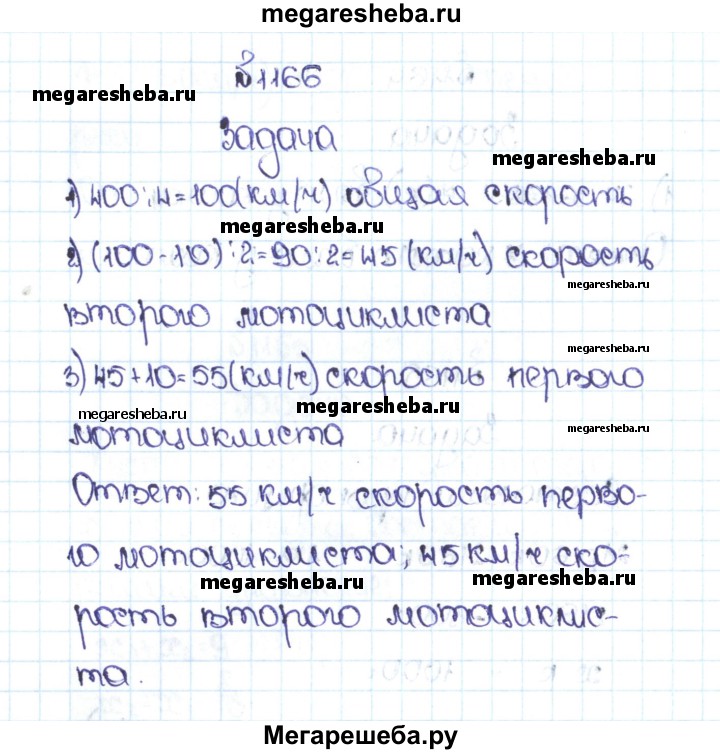 megaresheba.ru
№1166
megaresheba.ru
Задача
megaresheba.ru
1) 400:4=100(км/ч) общая скорость
megaresheba.ru
2) (100-10):2=90:2=45 (км/ч) скорость
megaresheba.ru
второго мотоциклиста
megaresheba.ru
3) 45+10=55(км/ч) скорость первого
megaresheba.ru
megaresheba.ru
megaresheba.ru
мотоциклиста
Ответ: 55 км/ч скорость перво-
го мотоциклиста; 45 км/ч ско-
megaresheba.ru
megaresheba.ru
рость второго мотоциклис-
та.
Мегарешеба.ру